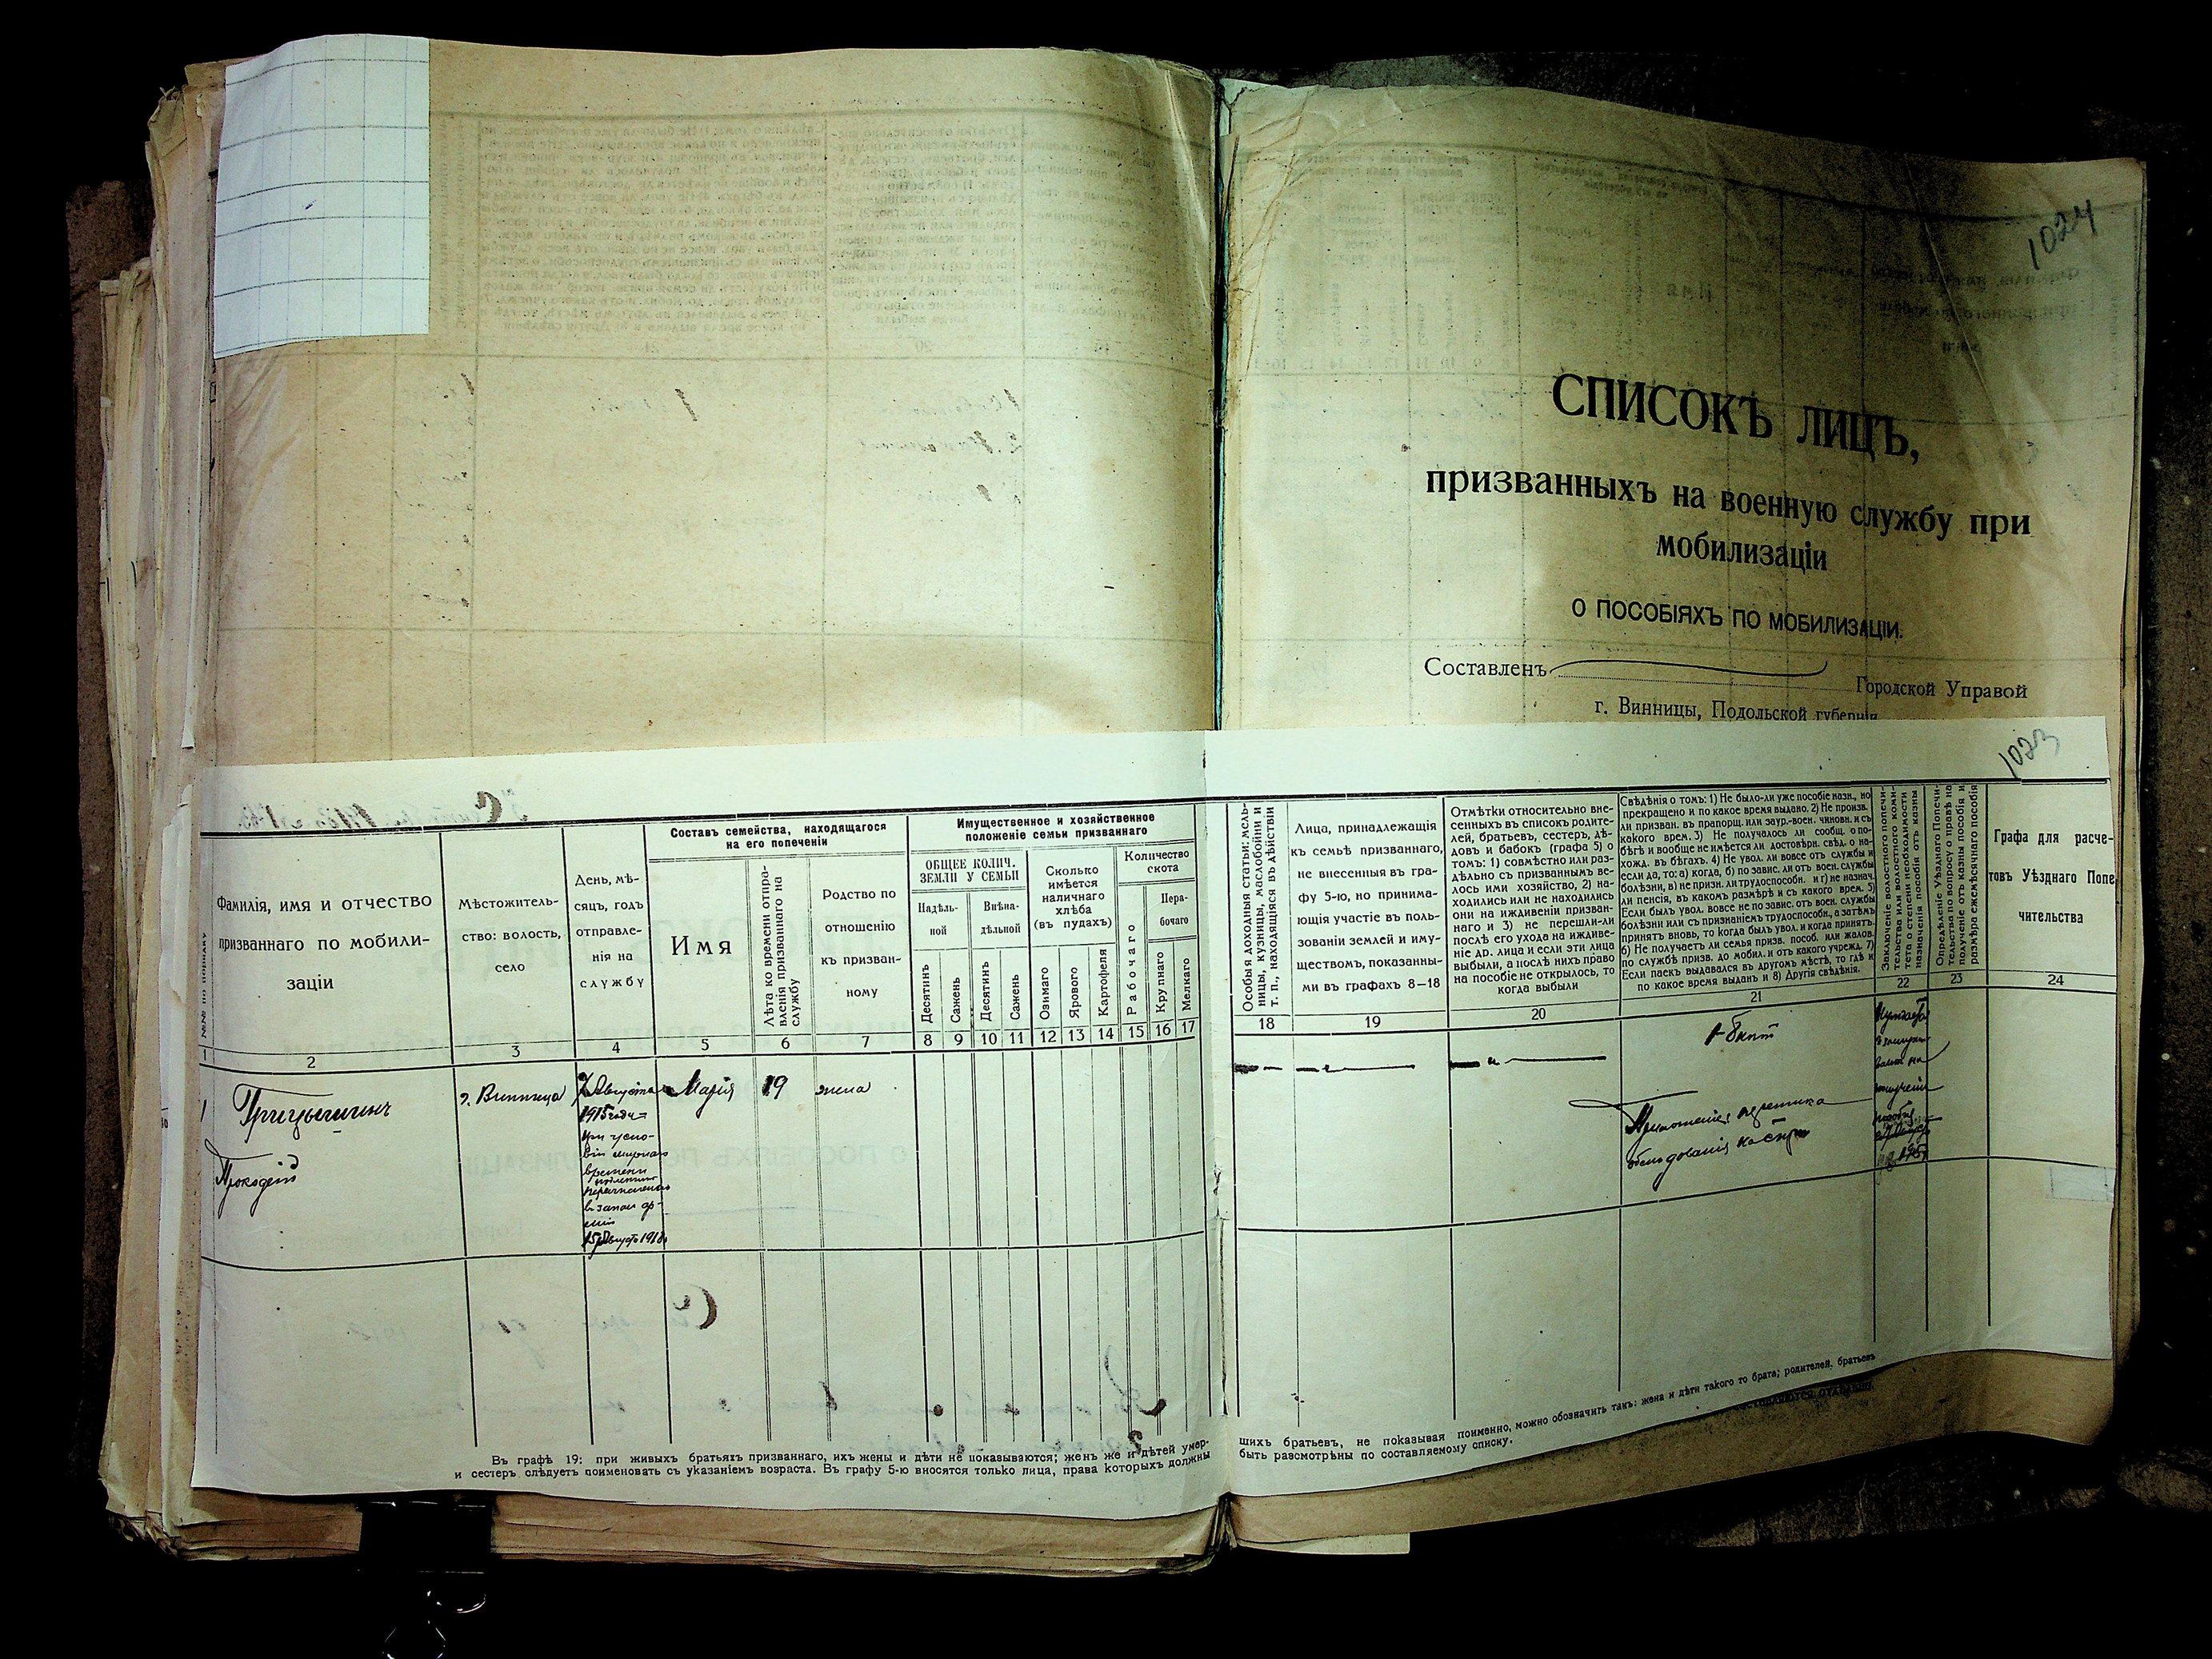 1024
СПИСОКЪ ЛИЦЪ,
призванныхъ на военную службу при
мобилизаціи
О ПОСОБІЯХЪ ПО МОБИЛИЗАЦІИ.
Составленъ
Городской Управой
г. Винницы, Подольской губерніи
1023
№№ по порядку
Фамилія, имя и отчество
призваннаго по мобили-
заціи
Мѣстожитель-
ство: волость,
село
День, мѣ-
сяцъ, годъ
отправле-
нія на
службу
Составъ семейства, находящагося
на его попеченіи
Имя
Лѣта ко времени отпра-
вленія призваннаго на
службу
Родство по
отношенію
къ призван-
ному
Имущественное и хозяйственное
положеніе семьи призваннаго
ОБЩЕЕ КОЛИЧ.
ЗЕМЛИ У СЕМЬИ
Надѣль-
ной
Внѣна-
дѣльной
Десятинъ
Сажень
Десятинъ
Сажень
Сколько
имѣется
наличнаго
хлѣба
(въ пудахъ)
Озимаго
Ярового
Картофеля
Количество
скота
Рабочаго
Нера-
бочаго
Крупнаго
Мелкаго
Особыя доходныя статьи: мель-
ницы, кузницы, маслобойни и
т. п., находящіяся въ дѣйствіи
Лица, принадлежащія
къ семьѣ призваннаго,
не внесенныя въ гра-
фу 5-ю, но принима-
ющія участіе въ поль-
зованіи землей и иму-
ществомъ, показанны-
ми въ графахъ 8—18
Отмѣтки относительно вне-
сенныхъ въ списокъ родите-
лей, братьевъ, сестеръ, дѣ-
довъ и бабокъ (графа 5) о
томъ: 1) совмѣстно или раз-
дѣльно съ призваннымъ ве-
лось ими хозяйство, 2) на-
ходились или не находились
они на иждивеніи призван-
наго и 3) не перешли-ли
послѣ его ухода на иждиве-
ніе др. лица и если эти лица
выбыли, а послѣ нихъ право
на пособіе не открылось, то
когда выбыли
Свѣдѣнія о томъ: 1) Не было-ли уже пособіе назн., но
прекращено и по какое время выдано. 2) Не произв.
ли призван. въ прапорщ. или заур.-воен. чиновн. и съ
какого врем. 3) Не получалось ли сообщ. о по-
бѣгѣ и вообще не имѣется ли достовѣрн. свѣд. о на-
хожд. въ бѣгахъ. 4) Не увол. ли вовсе отъ службы и
если да, то: а) когда, б) по завис. ли отъ воен. службы
болѣзни, в) не призн. ли трудоспособн. и г) не назнач.
ли пенсія, въ какомъ размѣрѣ и съ какого врем. 5)
Если былъ увол. вовсе не по завис. отъ воен. службы
болѣзни или съ признаніемъ трудоспособн., а затѣмъ
принятъ вновь, то когда былъ увол. и когда принятъ.
6) Не получаетъ ли семья призв. пособ. или жалов.
по службѣ призв. до мобил. и отъ какого учрежд. 7)
Если паекъ выдавался въ другомъ мѣстѣ, то гдѣ и
по какое время выданъ и 8) Другія свѣдѣнія.
Заключеніе волостного попечи-
тельства или волостного коми-
тета о степени необходимости
назначенія пособія отъ казны
Опредѣленіе Уѣзднаго Попечи-
тельства по вопросу о правѣ на
полученіе отъ казны пособія и
размѣра ежемѣсячнаго пособія
Графа для расче-
товъ Уѣзднаго Попе-
чительства
1 2 3 4 5 6 7 8 9 10 11 12 13 14 15 16 17 18 19 20 21 22 23 24
1
Грицышинъ
г. Винница
7 Августа
1915 года
Марія
19
жена
времени
15 Августа 1918
Въ графѣ 19: при живыхъ братьяхъ призваннаго, ихъ жены и дѣти не показываются; женъ же и дѣтей умер-
шихъ братьевъ, не показывая поименно, можно обозначить такъ: жена и дѣти такого то брата; родителей, братьевъ
и сестеръ слѣдуетъ поименовать съ указаніемъ возраста. Въ графу 5-ю вносятся только лица, права которыхъ должны
быть разсмотрѣны по составляемому списку.